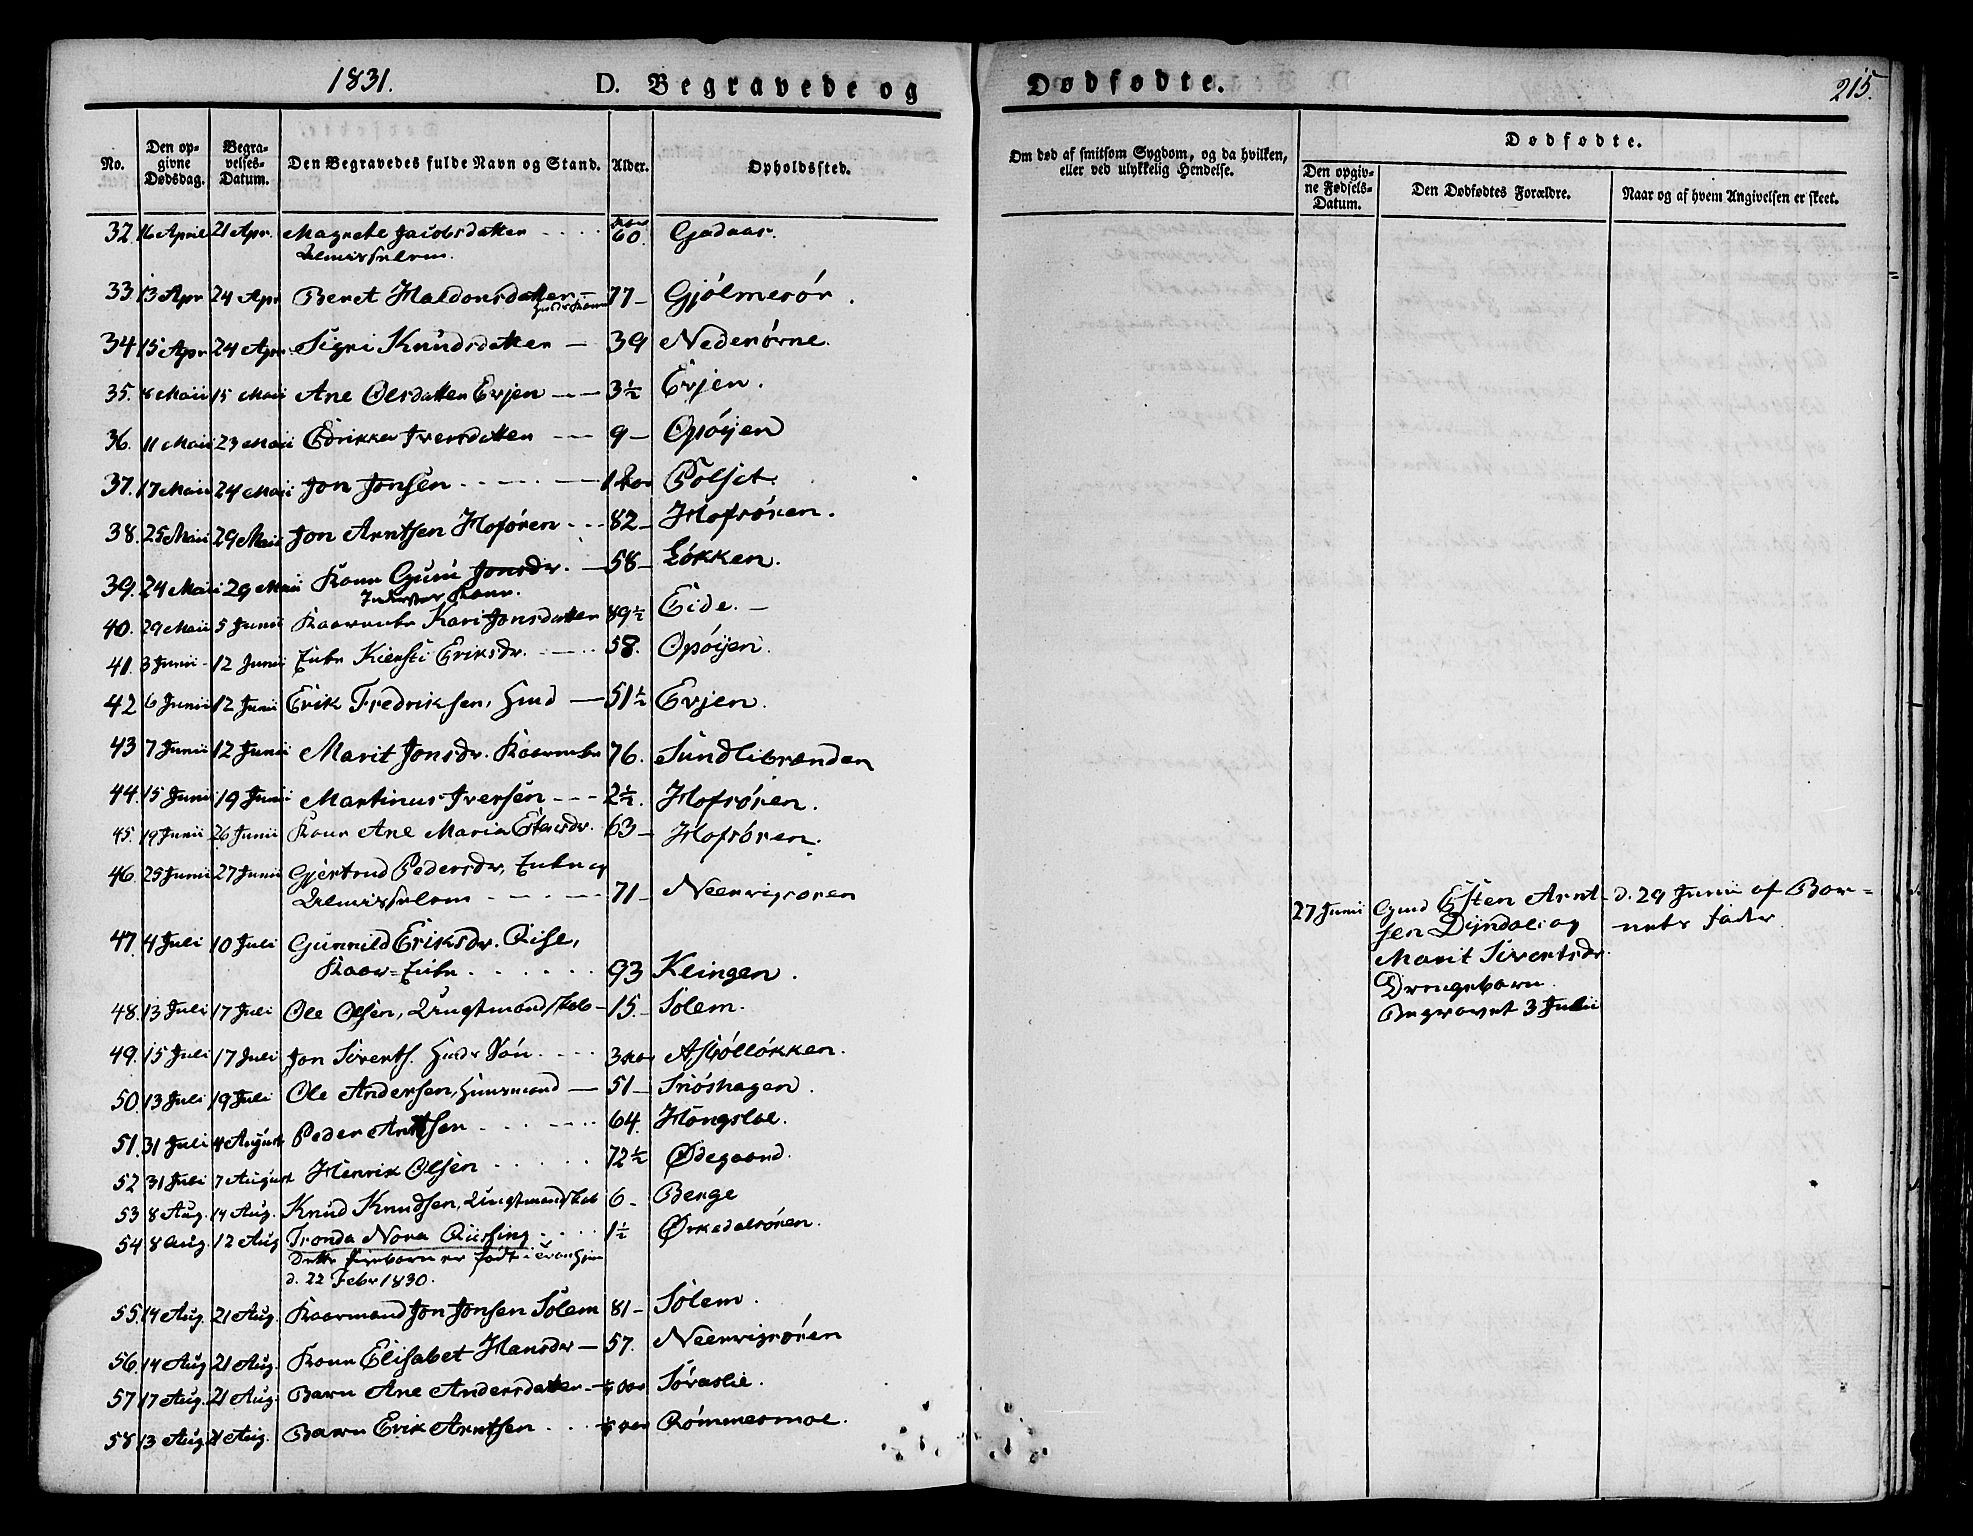 1831.
D. Begravede og
Dødfødte.
215.
No.
Den opgivne Dødsdag.
Begravelses-Datum.
Den Begravedes fulde Navn og Stand.
Alder.
Opholdssted.
Om død af smitsom Sygdom, og da hvilken,
eller ved ulykkelig Hendelse.
Dødfødte.
Den opgivne Fødsels-Datum.
Den Dødfødtes Forældre.
Naar og af hvem Angivelsen er skeet.
32. 16 April 21 Apr. Magrete Jacobsdatter 60.
33. 13 Apr 24 Apr Beret Haldorsdatter 77 Gjølmesør.
34 15 Apr 24 Apr. Sigri Knudsdatter 39 Nederørne.
35. 8 Maii 15 Maii Ane Olsdatter Evjen 3½ Evjen.
36. 11 Maii 23 Maii Iversdatter 9 Opøijen
37. 17 Maii 24 Maii Jon Jonsen 1 Polset.
38. 25 Maii 29 Maii Jon Arntsen Hoføren 82 Hofsøren.
39. 24 Maii 29 Maii Kone Guru Jonsdr. 58 Løkken.
Kone.
40. 29 Maii 5 Junii Kari Jonsdatter 89½ Eide.
41. 3 Junii 12 Junii Enke Kiersti Eriksdr. 58. Opøijen.
42 6 Junii 12 Junii Erik Fredriksen, Gmd 51½ Evjen.
43 7 Junii 12 Junii Marit Jonsdr. 76. Sundlibrænden
44. 15 Junii 19 Junii Martinus Iversen 2½. Hofsøren.
45. 19 Junii 26 Junii Kone Ane Maria 63 Hofsøren.
46. 25 Junii 27 Junii Gjertrud Pedersdr, Enke og
71 Neervigsøren
27 Junii Gmd Esten Arnt-
sen Dijndal og
Marit Sivertsdr.
Drengebarn.
Begravet 3 Julii
d. 29 Junii af Bar-
nets Fader
47. 4 Juli 10 Juli Gunnild Eriksdr. Rise,
Kaar-Enke 93 Klingen.
48. 13 Juli 17 Juli Ole Olsen, 15 Solem.
49. 15 Juli 17 Juli Jon Siverts. Søn 3
50. 13 Juli 19 Juli Ole Andersen, Huusmand 51 Snøshagen.
51. 31 Juli 4 August Peder Arntsen 64.
52 31 Juli 7 August Henrik Olsen 72½ Ødegaard.
53 8 Aug. 14 Aug. Knud Knudsen, 6 Berge
54 8 Aug. 12 Aug Tronda Nora 1½ Ørkedalsøren.
Dette Pigebarn er født i
d. 22 Febr 1830.
55. 14 Aug. 21 Aug. Kaarmand Jon Jonsen Solem 81 Solem.
56. 14 Aug 21 Aug. Kone Elisabet Hansdr 57. Neervigsøren
57 17 Aug. 21 Aug. Barn Ane Andersdatter
58. 13 Aug. 21 Aug. Barn Erik Arntsen Rømmesmoe.